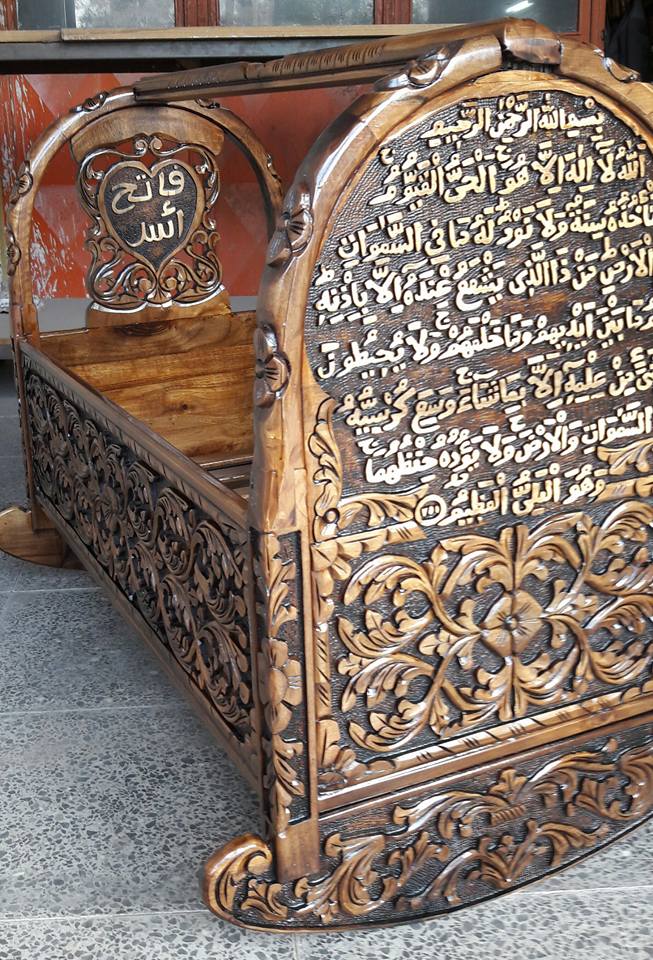 فاتح
أسد
بِسْمِ اللهِ الرَّحْمٰنِ الرَّحِيمِ
اَللهُ لَا اِلٰهَ اِلَّا هُوَ الْحَيُّ الْقَيُّومُ
تَأْخُذُهُ سِنَةٌ وَلَا نَوْمٌ لَهُ مَا فِي السَّمٰوَاتِ
الْاَرْضِ مَنْ ذَا الَّذِي يَشْفَعُ عِنْدَهُ اِلَّا بِاِذْنِهِ
مَا بَيْنَ اَيْدِيهِمْ وَمَا خَلْفَهُمْ وَلَا يُحِيطُونَ
مِنْ عِلْمِهِ اِلَّا بِمَا شَاءَ وَسِعَ كُرْسِيُّهُ
السَّمٰوَاتِ وَالْاَرْضَ وَلَا يَؤُدُهُ حِفْظُهُمَا
وَهُوَ الْعَلِيُّ الْعَظِيمُ ٢٥٥